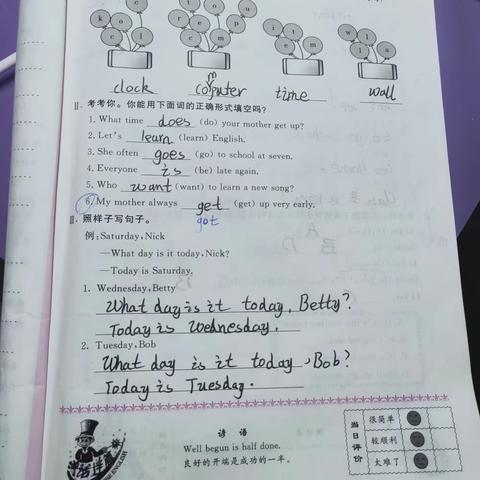 c t o u
k o r e p i t w l
c l c m e m l a
clock computer time wall
II. 考考你。你能用下面词的正确形式填空吗?
1. What time does (do) your mother get up?
2. Let's learn (learn) English.
3. She often goes (go) to school at seven.
4. Everyone is (be) late again.
5. Who want (want) to learn a new song?
6. My mother always get (get) up very early.
got
III. 照样子写句子。
例:Saturday, Nick
—What day is it today, Nick?
—Today is Saturday.
1. Wednesday, Betty
What day is it today, Betty?
Today is Wednesday.
2. Tuesday, Bob
What day is it today, Bob?
Today is Tuesday.
谚语
Well begun is half done.
良好的开端是成功的一半。
当日评价
很简单
较顺利
太难了
ENGLISH